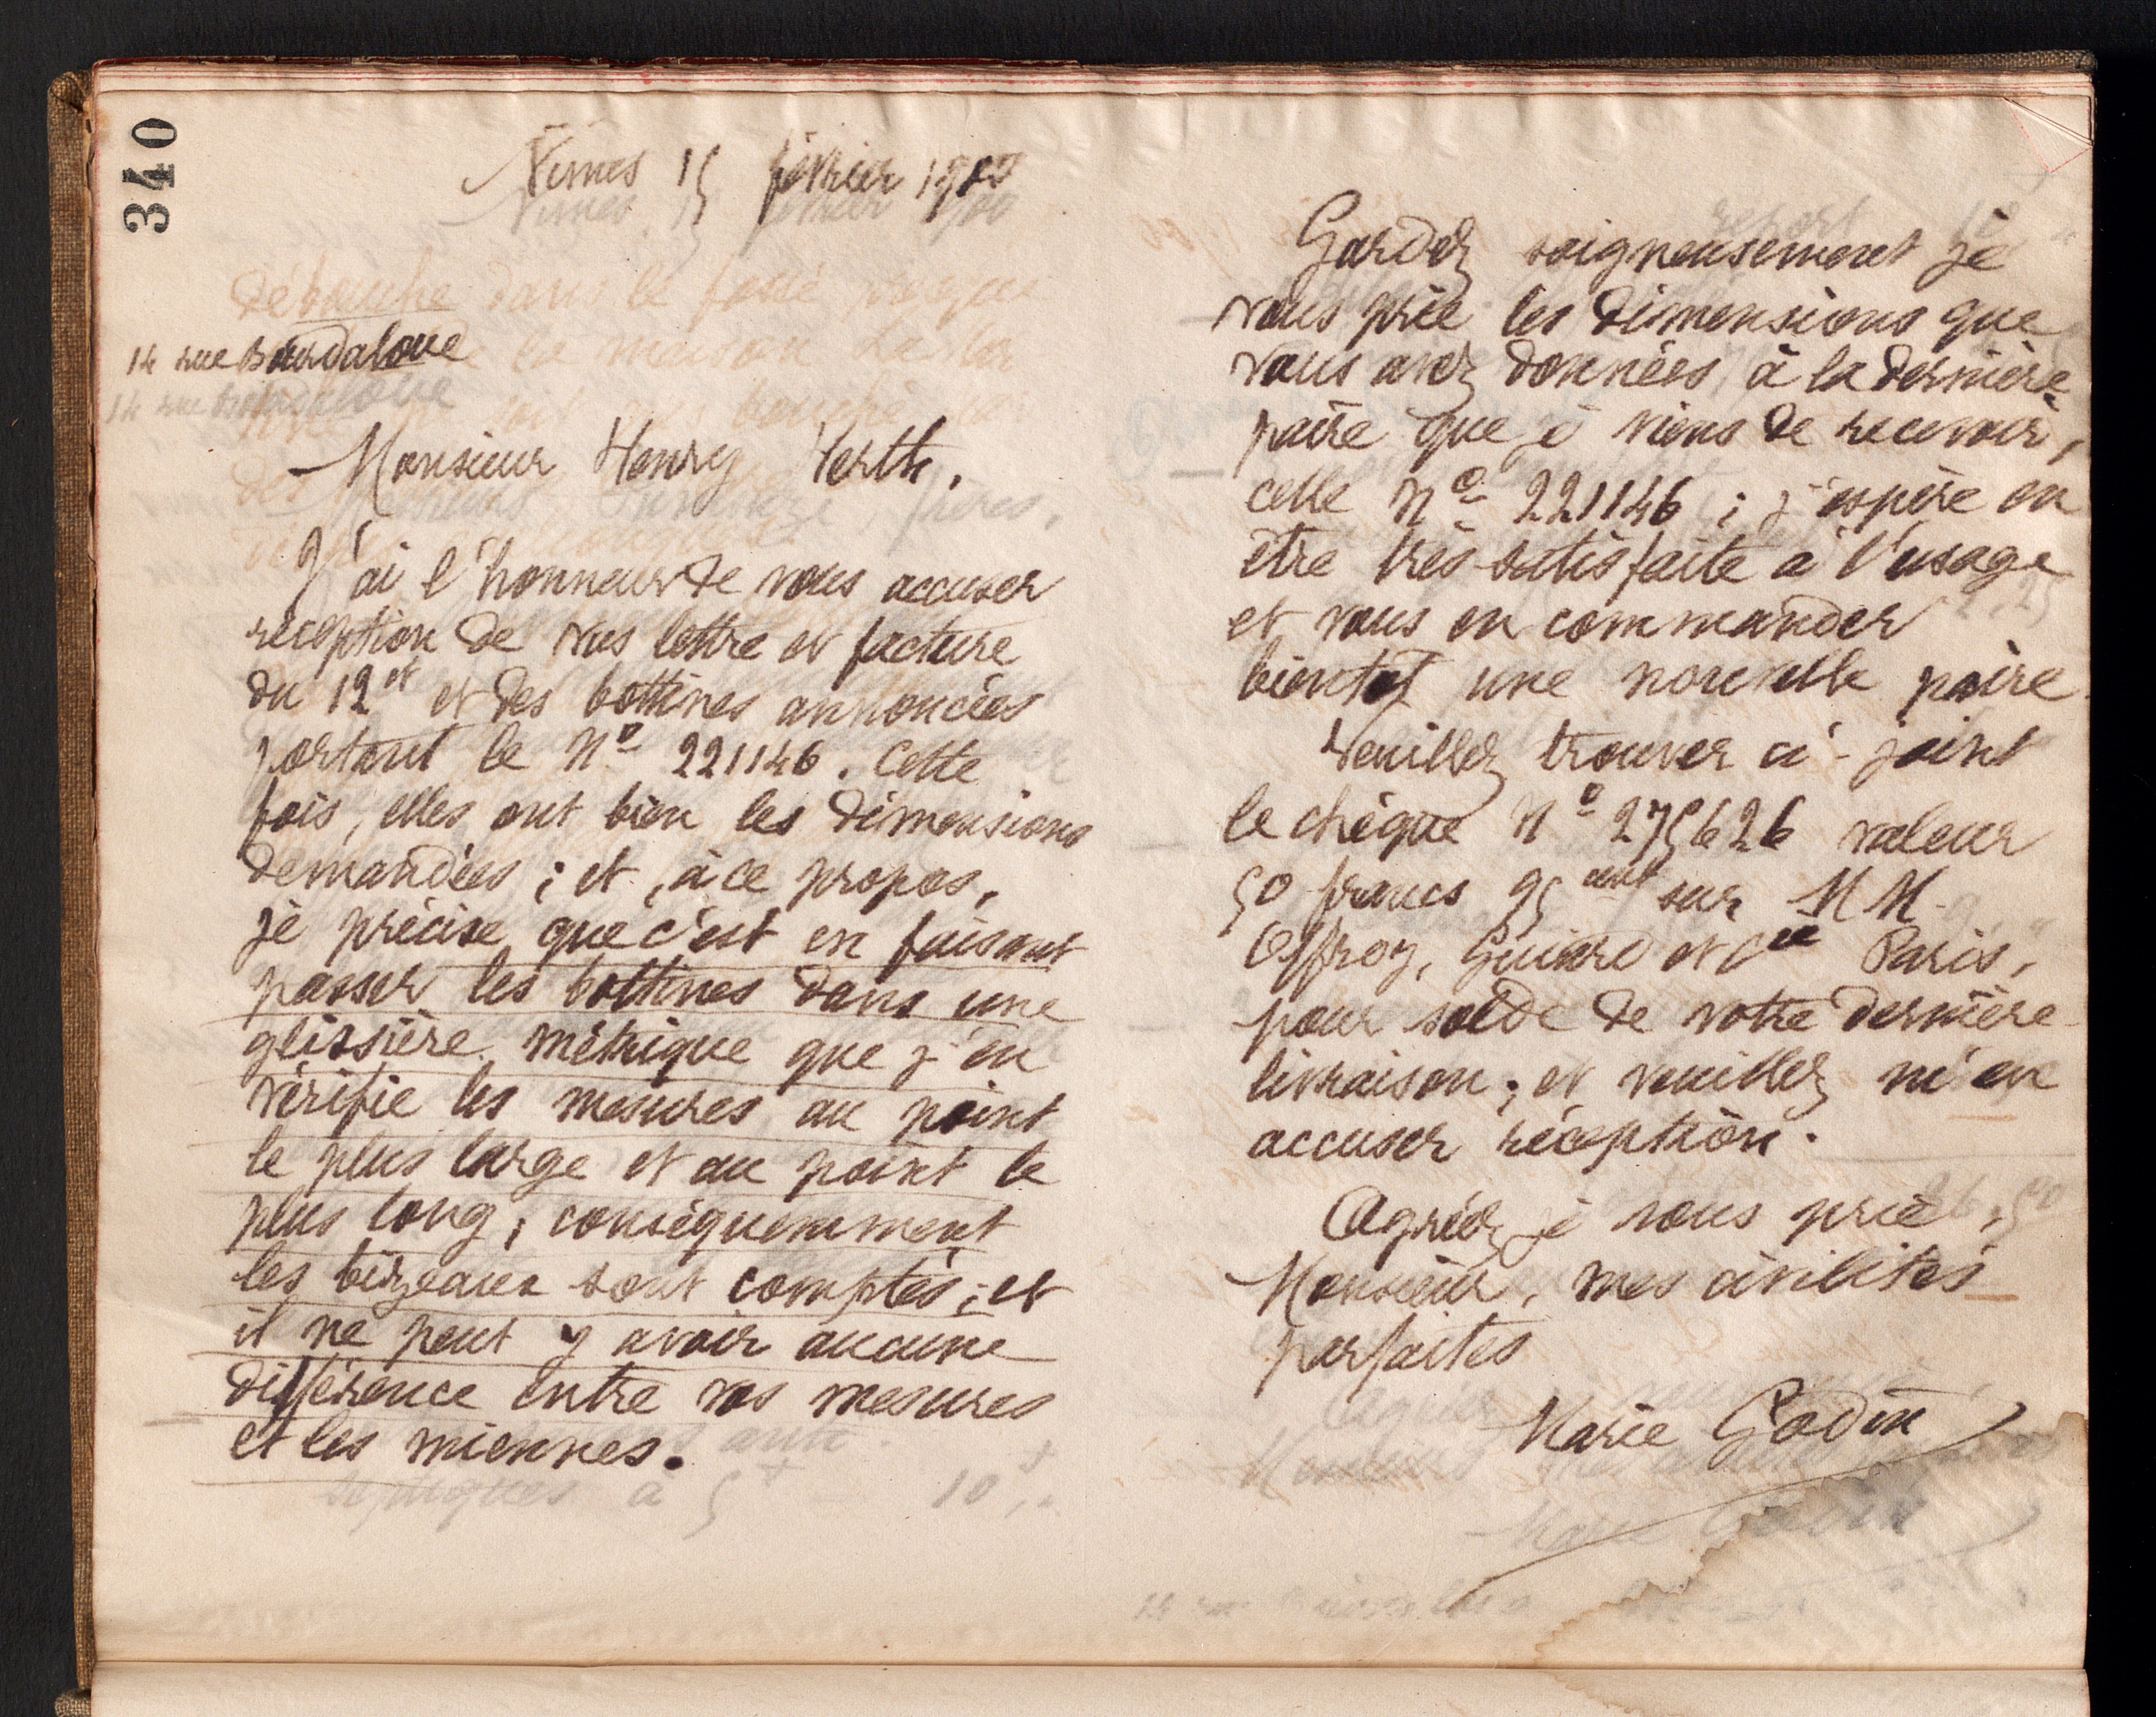 340
Nîmes 15 février 1900
14 rue Bourdaloue
Monsieur Henry Herth,
J'ai l'honneur de vous accuser
réception de vos lettre et facture
du 12 et et des bottines annoncées
portant le N° 221146. Cette
fois, elles ont bien les dimensions
demandées ; et, à ce propos,
je précise que c'est en faisant
passer les bottines dans une
glissière métrique que j'en
vérifie les mesures au point
le plus large et au point le
plus long ; conséquemment
les bizeaux sont comptés ; et
il ne peut y avoir aucune
différence entre vos mesures
et les miennes.
Gardez soigneusement je
vous prie les dimensions que
vous avez données à la dernière
paire que je viens de recevoir,
celle N° 221146 ; j'espère en
être très satisfaite à l'usage
et vous en commander
bientot une nouvelle paire
Veuillez trouver ci-joint
le chèque N° 275626 valeur
50 francs 95 cent sur MM.
Offroy, Guiard et Cie Paris,
pour solde de votre dernière
livraison ; et veuillez m'en
accuser réception.
Agréez je vous prie,
Monsieur, mes civilités
parfaites
Marie Godin